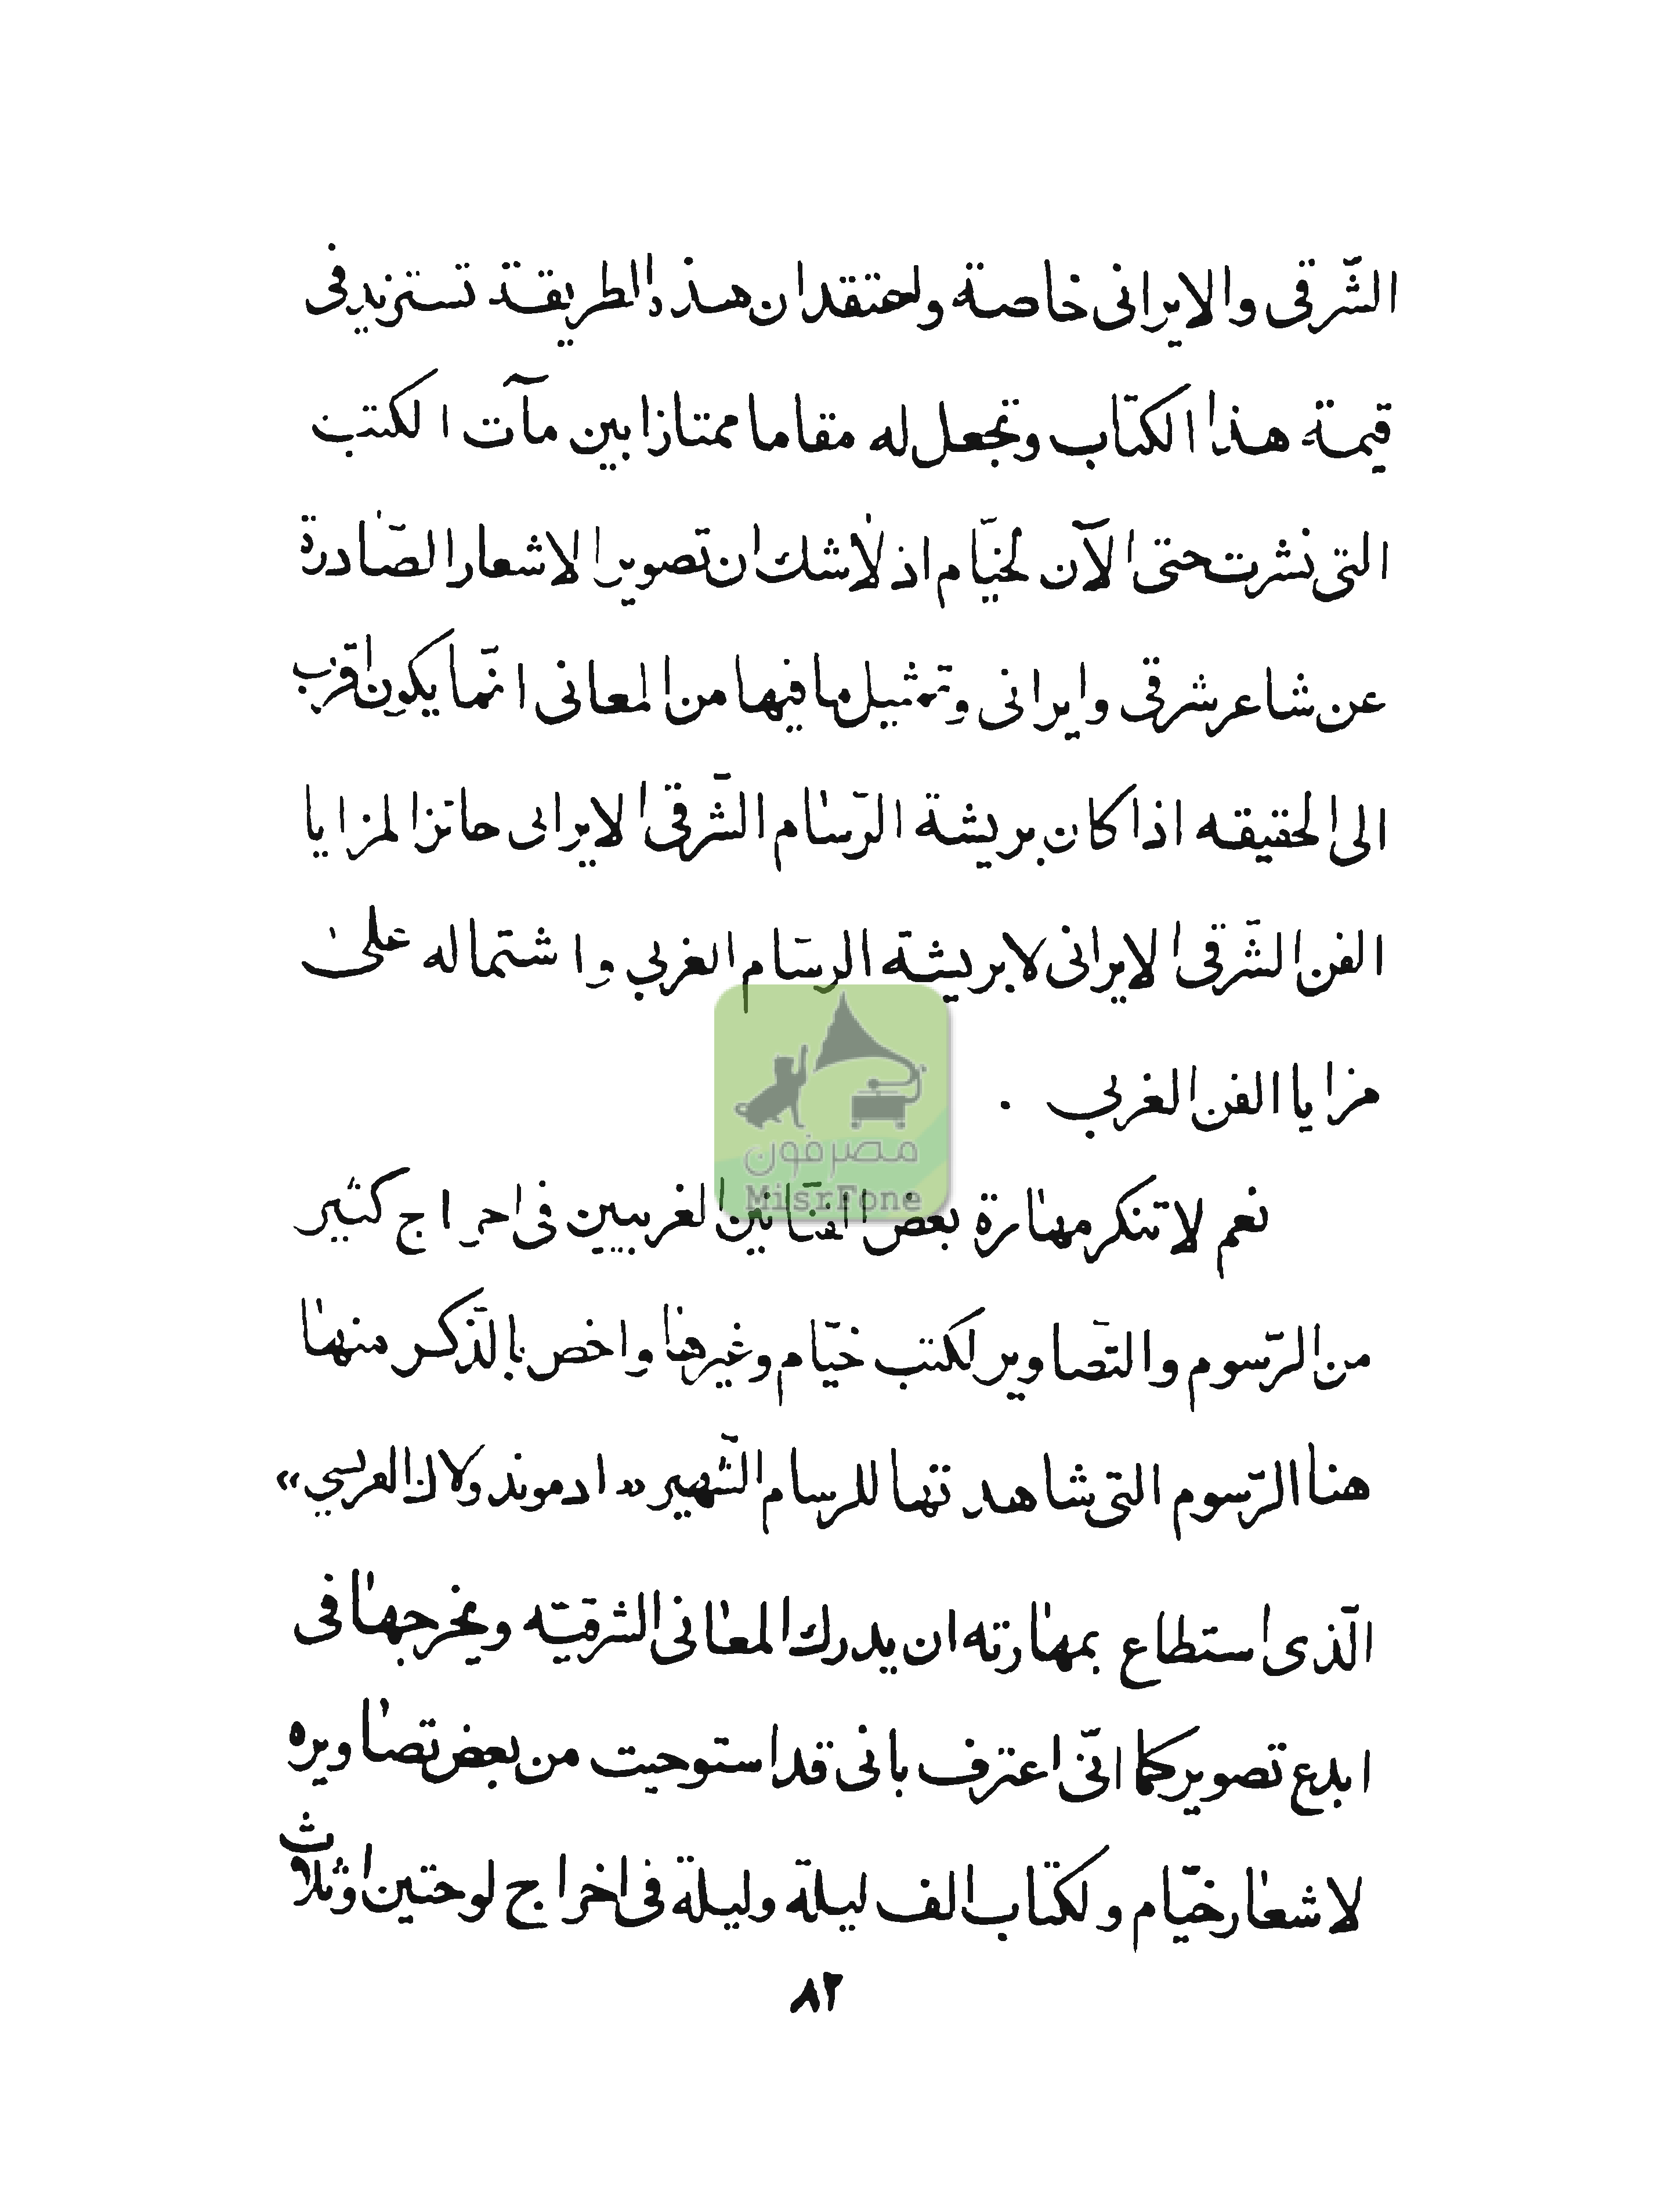 الشّرقى والايرانى خاصة واعتقد ان هذه الطريقة ستزيد فى
قيمة هذا الكتاب وتجعل له مقاما ممتازا بين مآت الكتب
التى نشرت حتى الآن لخيّام اذ لاشك ان تصوير الاشعار الصّادرة
عن شاعر شرقى وايرانى وتمثيل ما فيها من المعانى انّما يكون اقرب
الى الحقيقه اذا كان بريشة الرّسام الشّرقى الايرانى حائزا لمزايا
الفن الشّرقى الايرانى لا بريشة الرسّام الغربي واشتماله على
مزايا الفن الغربي .
مصرفون
MisrFone
نعم لا تنكر مهارة بعض الفنّانين الغربيين فى اخراج كثير
من الرّسوم والتصّاوير لكتب خيّام وغيرها واخص بالذّكر منها
هنا الرّسوم التى شاهدتها للرسام الشّهير « ادموند ولاك الفرنسي »
الّذى استطاع بمهارته ان يدرك المعانى الشرقيّه ويخرجها فى
ابدع تصوير كما انّى اعترف بانى قد استوحيت من بعض تصاويره
لاشعار خيّام ولكتاب الف ليلة وليلة فى اخراج لوحتين او ثلاث
٨٢